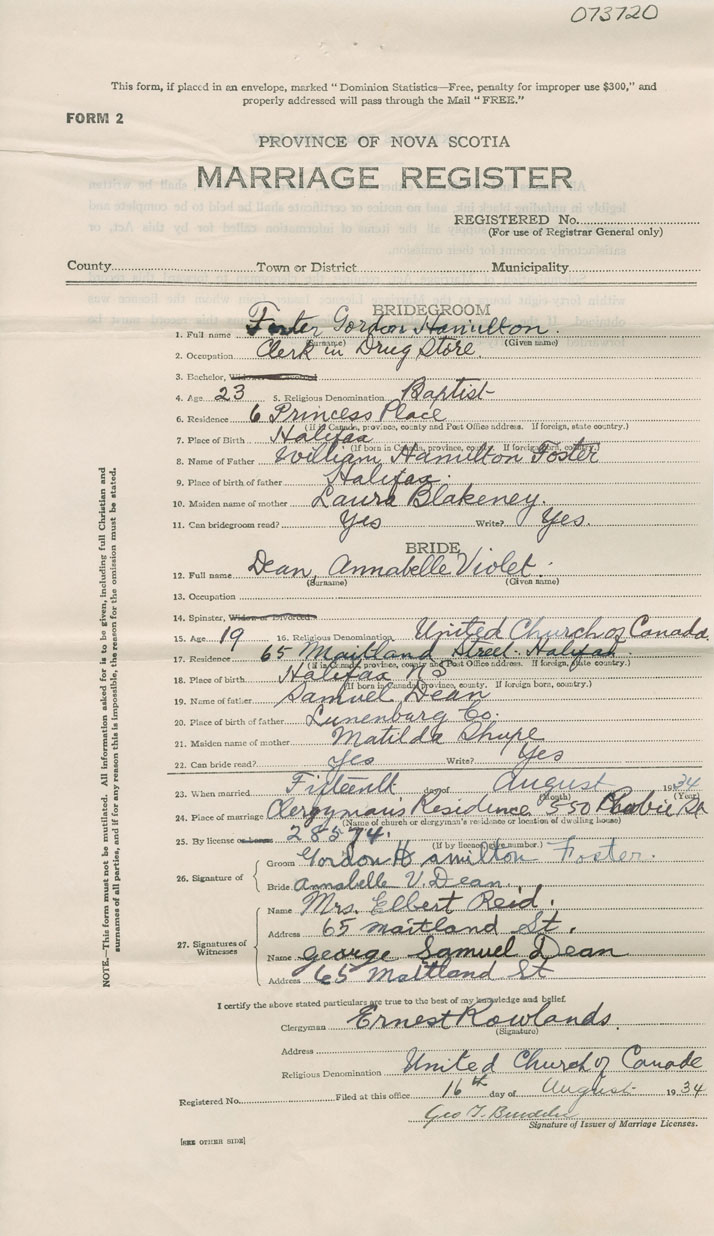 073720
This form, if placed in an envelope, marked "Dominion Statistics—Free, penalty for improper use $300," and
properly addressed will pass through the Mail "FREE."
FORM 2
PROVINCE OF NOVA SCOTIA
MARRIAGE REGISTER
REGISTERED No.
(For use of Registrar General only)
County Town or District Municipality
BRIDEGROOM
1. Full name Foster Gordon Hamilton.
(Surname) (Given name)
2. Occupation Clerk in Drug Store
3. Bachelor, Widower or Divorced
4. Age 23 5. Religious Denomination Baptist
6. Residence 6 Princess Place
(If in Canada, province, county and Post Office address. If foreign, state country.)
7. Place of Birth Halifax
(If born in Canada, province, county. If foreign born, country.)
8. Name of Father William Hamilton Foster
9. Place of birth of father Halifax.
10. Maiden name of mother Laura Blakeney.
11. Can bridegroom read? Yes Write? Yes.
BRIDE
12. Full name Dean, Annabelle Violet.
(Surname) (Given name)
13. Occupation
14. Spinster, Widow or Divorced
15. Age 19 16. Religious Denomination United Church of Canada
17. Residence 65 Maitland Street. Halifax.
(If in Canada, province, county and Post Office address. If foreign, state country.)
18. Place of birth Halifax N S
(If born in Canada, province, county. If foreign born, country.)
19. Name of father Samuel Dean
20. Place of birth of father Lunenburg Co.
21. Maiden name of mother Matilda Shupe
22. Can bride read? Yes Write? Yes
23. When married Fifteenth day of August 1934
(Month) (Year)
24. Place of marriage Clergyman's Residence 550 St
(Name of church or clergyman's residence or location of dwelling house)
25. By license or banns 28574.
(If by license give number.)
26. Signature of
Groom Gordon Hamilton Foster.
Bride Annabelle V. Dean.
27. Signatures of Witnesses
Name Mrs. Elbert Reid.
Address 65 Maitland St.
Name George Samuel Dean
Address 65 Maitland St
I certify the above stated particulars are true to the best of my knowledge and belief.
Clergyman Ernest Rowlands.
(Signature)
Address
Religious Denomination United Church of Canada
Registered No. Filed at this office 16th day of August 1934
Geo
Signature of Issuer of Marriage Licenses.
[SEE OTHER SIDE]
NOTE.—This form must not be mutilated. All information asked for is to be given, including full Christian and
surnames of all parties, and if for any reason this is impossible, the reason for the omission must be stated.